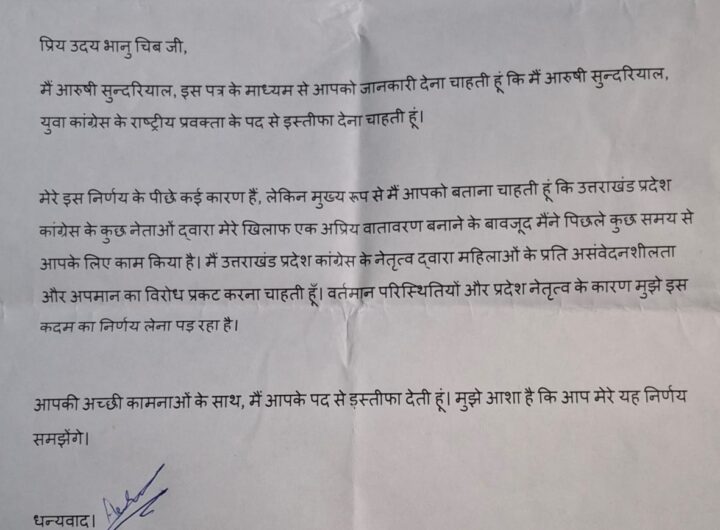 प्रिय उदय भानु चिब जी,
मैं आरुषी सुन्दरियाल, इस पत्र के माध्यम से आपको जानकारी देना चाहती हूं कि मैं आरुषी सुन्दरियाल,
युवा कांग्रेस के राष्ट्रीय प्रवक्ता के पद से इस्तीफा देना चाहती हूं।
मेरे इस निर्णय के पीछे कई कारण हैं, लेकिन मुख्य रूप से मैं आपको बताना चाहती हूं कि उत्तराखंड प्रदेश
कांग्रेस के कुछ नेताओं द्वारा मेरे खिलाफ एक अप्रिय वातावरण बनाने के बावजूद मैंने पिछले कुछ समय से
आपके लिए काम किया है। मैं उत्तराखंड प्रदेश कांग्रेस के नेतृत्व द्वारा महिलाओं के प्रति असंवेदनशीलता
और अपमान का विरोध प्रकट करना चाहती हूँ। वर्तमान परिस्थितियों और प्रदेश नेतृत्व के कारण मुझे इस
कदम का निर्णय लेना पड़ रहा है।
आपकी अच्छी कामनाओं के साथ, मैं आपके पद से इस्तीफा देती हूं। मुझे आशा है कि आप मेरे यह निर्णय
समझेंगे।
धन्यवाद।